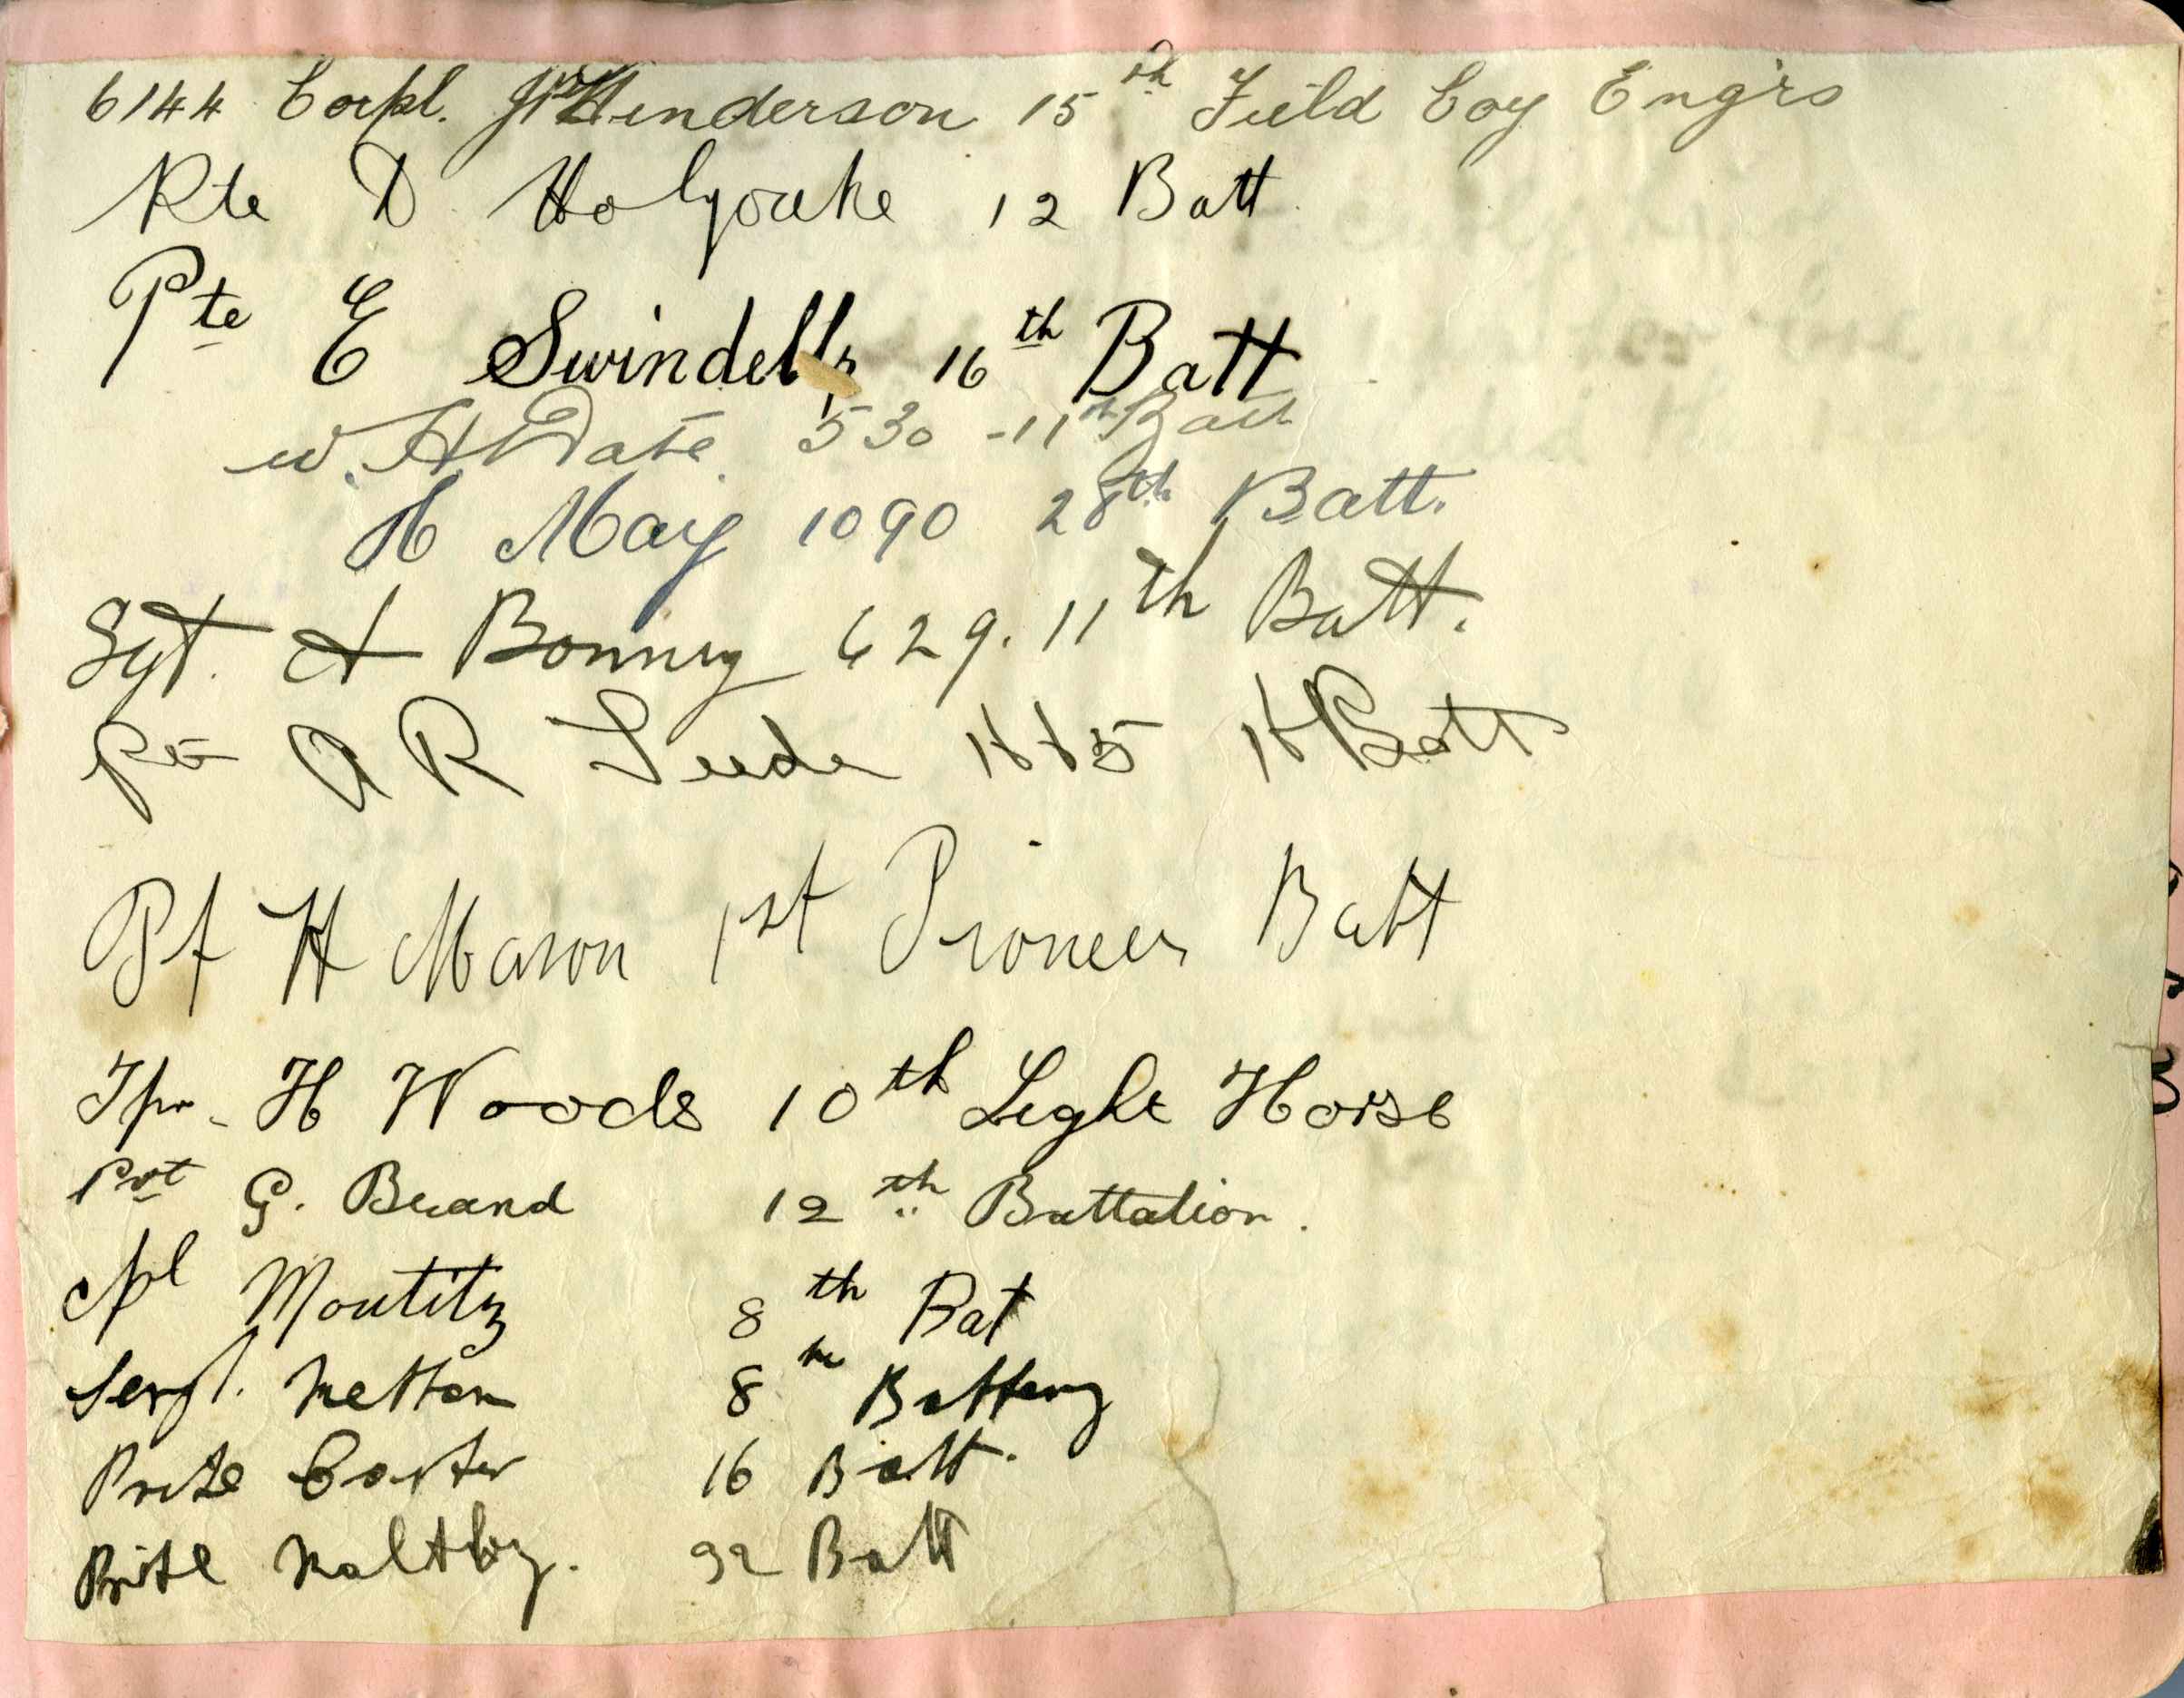 6144 Corpl. Henderson 15th Field Coy Engrs
Pte D Holyoake 12 Batt
Pte E Swindells 16th Batt
W. H. Date 530 - 11th Batt
H May 1090 28th Batt.
Sgt. A Bonney 629. 11th Batt.
Pte A R Leede 1665 16 Batt
Pt H Mason 1st Pioneer Batt
Tpr. H Woods 10th Light Horse
Pvt G. Beand 12th Battalion.
Cpl Moutitz 8th Bat
Sergt. Metton 8th Battery
Prite Carter 16 Batt.
Prite Maltby. 32 Batt